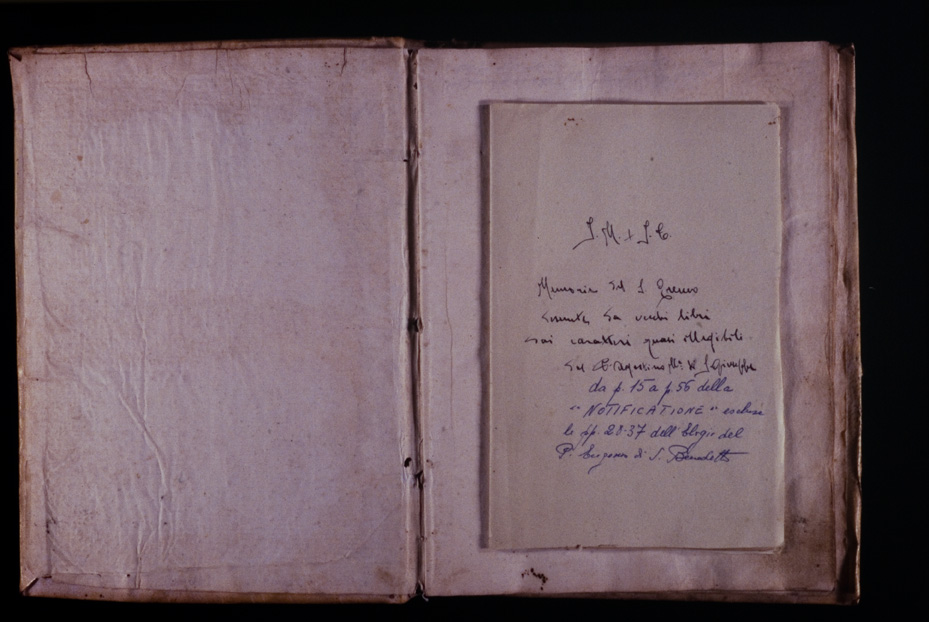 J. M. + J. C.
Memorie del S. Eremo
da vecchi libri
dai caratteri quasi illegibili
del P. Agostino M. di S. Giuseppe
da p. 15 a p. 56 della
"NOTIFICATIONE" escluse
le pp. 28-37 dell'Elogio del
P. di S. Benedetto